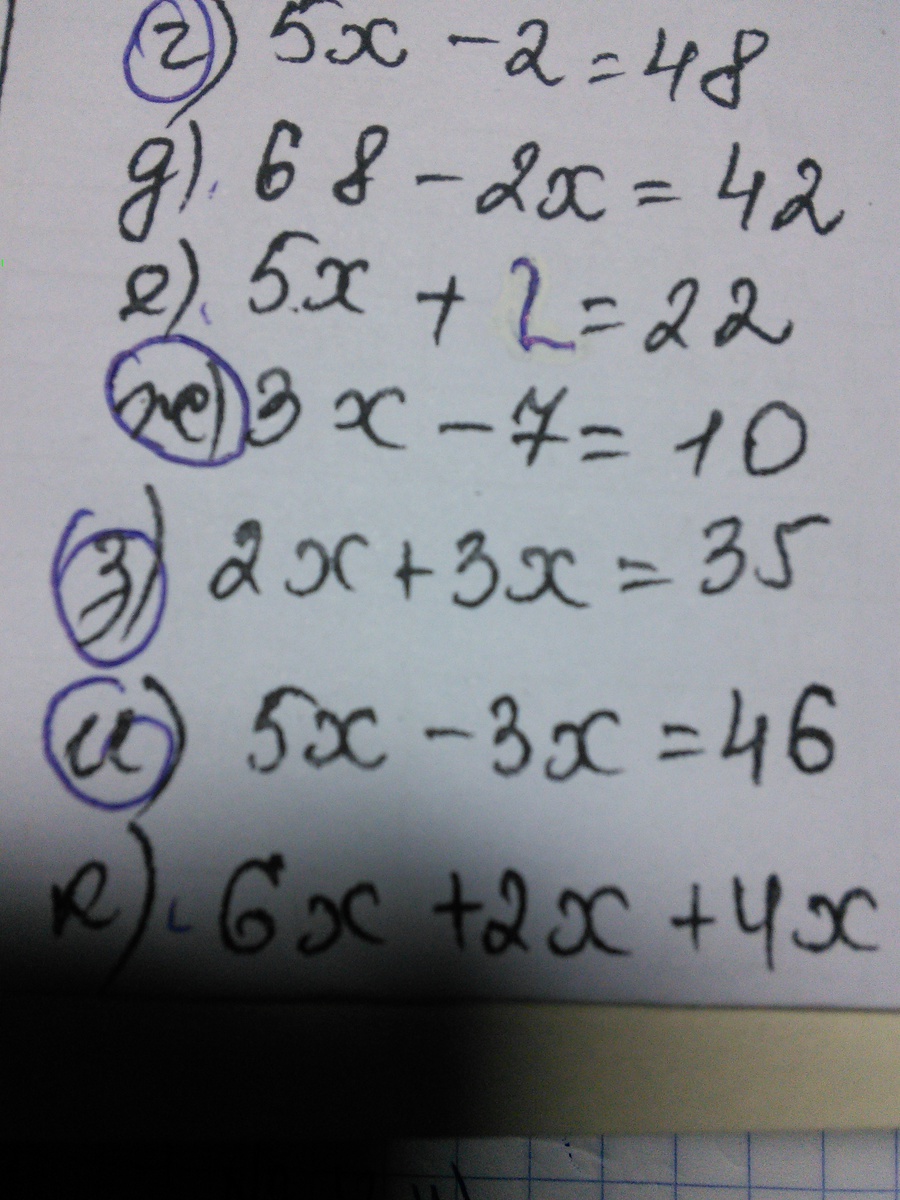 г) 5x - 2 = 48
д) 68 - 2x = 42
е) 5x + 2 = 22
ж) 3x - 7 = 10
з) 2x + 3x = 35
и) 5x - 3x = 46
к) 6x + 2x + 4x